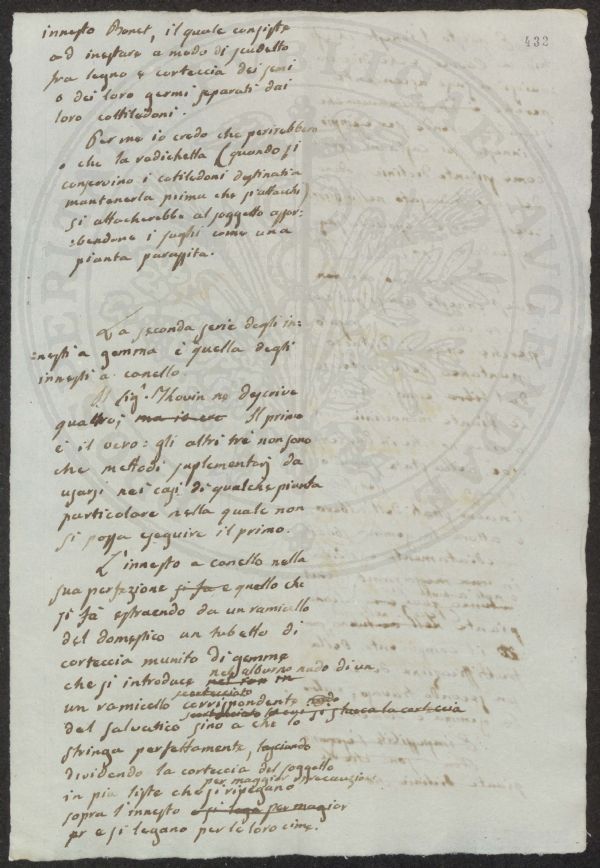 432
innesto Bonet, il quale consiste
ad inestare a modo di scudetto
fra legno e corteccia dei semi
o dei loro germi separati dai
loro cottiledoni.
Per me io credo che perirebbero
o che la radichetta (quando si
conservino i cotiledoni destinati a
mantenerla prima che s'attacchi)
si attacherebbe al soggetto assor=
=bendone i sughi come una
pianta parassita.
La seconda serie degli in=
=nesti a gemma è quella degli
innesti a canello.
Il Sig.r Thovin ne descrive
quattro; Il primo
è il vero: gli altri tré non sono
che mettodi suplementarj da
usarsi nei casi di qualche pianta
particolare nella quale non
si possa eseguire il primo.
L'innesto a canello nella
sua perfezione si fa e quello che
si fà estraendo da un ramicello
del domestico un tubetto di
corteccia munito di gemme
che si introduce nell'alburno nudo di un
un ramicello scortecciato corrispondente
del salvatico sino a che lo si stacca la corteccia
stringa perfettamente, lasciando
dividendo la corteccia del soggetto
in più liste che si ripegano per maggior precauzione
sopra l'innesto e si lega per magior
pr e si legano per le loro cime.